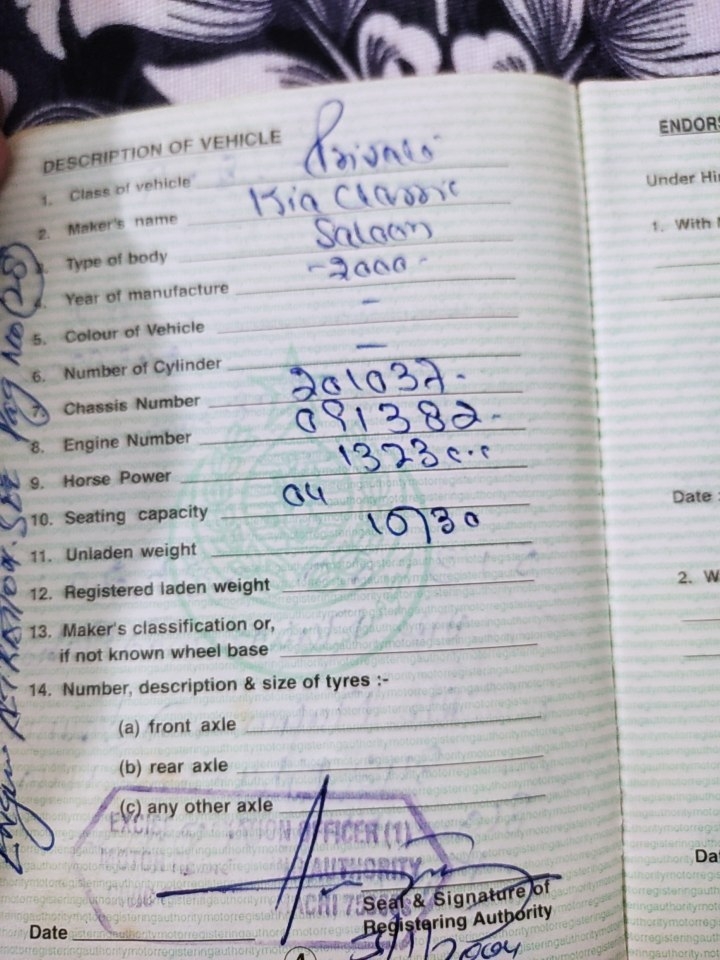 DESCRIPTION OF VEHICLE
1. Class of vehicle Private
2. Maker's name Kia Classic
Type of body Saloon
Year of manufacture -2000-
5. Colour of Vehicle -
6. Number of Cylinder -
7. Chassis Number 201037-
8. Engine Number 091382-
9. Horse Power 1323 c.c
10. Seating capacity 04
11. Unladen weight 10730
12. Registered laden weight
13. Maker's classification or,
if not known wheel base
14. Number, description & size of tyres :-
(a) front axle
(b) rear axle
(c) any other axle
OFFICER (1)
MOTOR
AUTHORITY
Seal & Signature of
Registering Authority
Date
Engine Pag No (28)
ENDORS
Under Hi
1. With
Date
2. W
Da